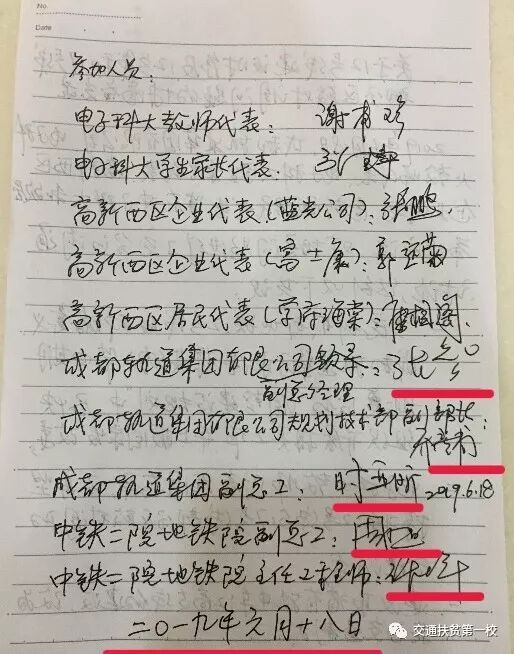 No.
Date
参加人员:
电子科大教师代表: 谢甫珍
电子科大学生家长代表:
高新西区企业代表(蓝光公司): 张鹏.
高新西区企业代表(富士康): 郭亚菊
高新西区居民代表(学府海棠):
成都轨道集团有限公司
副总经理
成都轨道集团有限公司规划技术部副部长:
成都轨道集团副总工: 2019.6.18
中铁二院地铁院副总工: 周
中铁二院地铁院主任工程师:
二〇一九年六月十八日
交通扶贫第一校